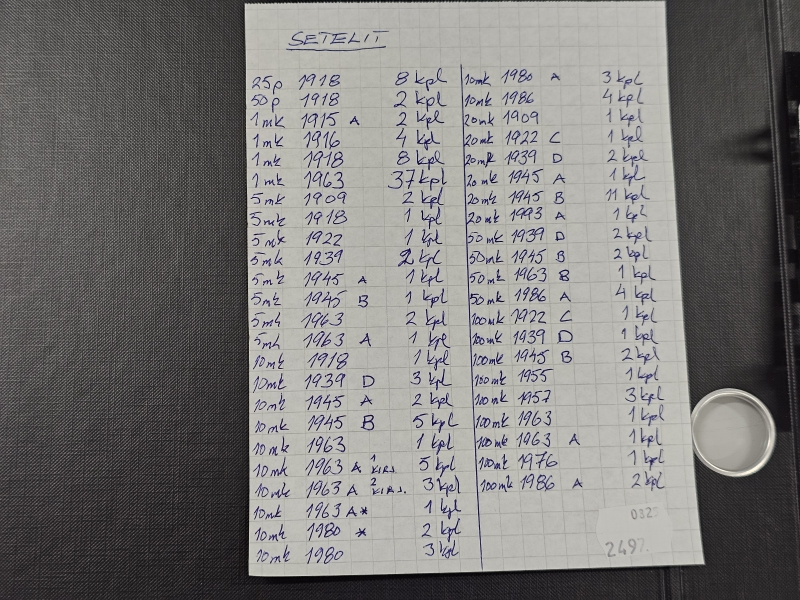 SETELIT
25p 1918 8 kpl
50p 1918 2 kpl
1mk 1915 A 2 kpl
1mk 1916 4 kpl
1mk 1918 8 kpl
1mk 1963 37 kpl
5mk 1909 2 kpl
5mk 1918 1 kpl
5mk 1922 1 kpl
5mk 1939 2 kpl
5mk 1945 A 1 kpl
5mk 1945 B 1 kpl
5mk 1963 2 kpl
5mk 1963 A 1 kpl
10mk 1918 1 kpl
10mk 1939 D 3 kpl
10mk 1945 A 2 kpl
10mk 1945 B 5 kpl
10mk 1963 1 kpl
10mk 1963 A 1 KIRJ. 5 kpl
10mk 1963 A 2 KIRJ. 3 kpl
10mk 1963 A* 1 kpl
10mk 1980 * 2 kpl
10mk 1980 3 kpl
10mk 1980 A 3 kpl
10mk 1986 4 kpl
20mk 1909 1 kpl
20mk 1922 C 1 kpl
20mk 1939 D 2 kpl
20mk 1945 A 1 kpl
20mk 1945 B 11 kpl
20mk 1993 A 1 kpl
50mk 1939 D 2 kpl
50mk 1945 B 2 kpl
50mk 1963 B 1 kpl
50mk 1986 A 4 kpl
100mk 1922 C 1 kpl
100mk 1939 D 1 kpl
100mk 1945 B 2 kpl
100mk 1955 1 kpl
100mk 1957 3 kpl
100mk 1963 1 kpl
100mk 1963 A 1 kpl
100mk 1976 1 kpl
100mk 1986 A 2 kpl